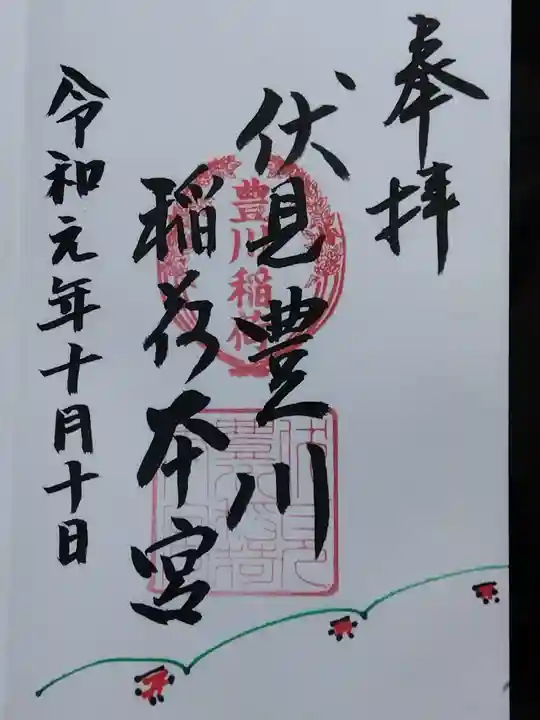 奉拝
伏見豊川
稲荷本宮
令和元年十月十日
豊川稲荷